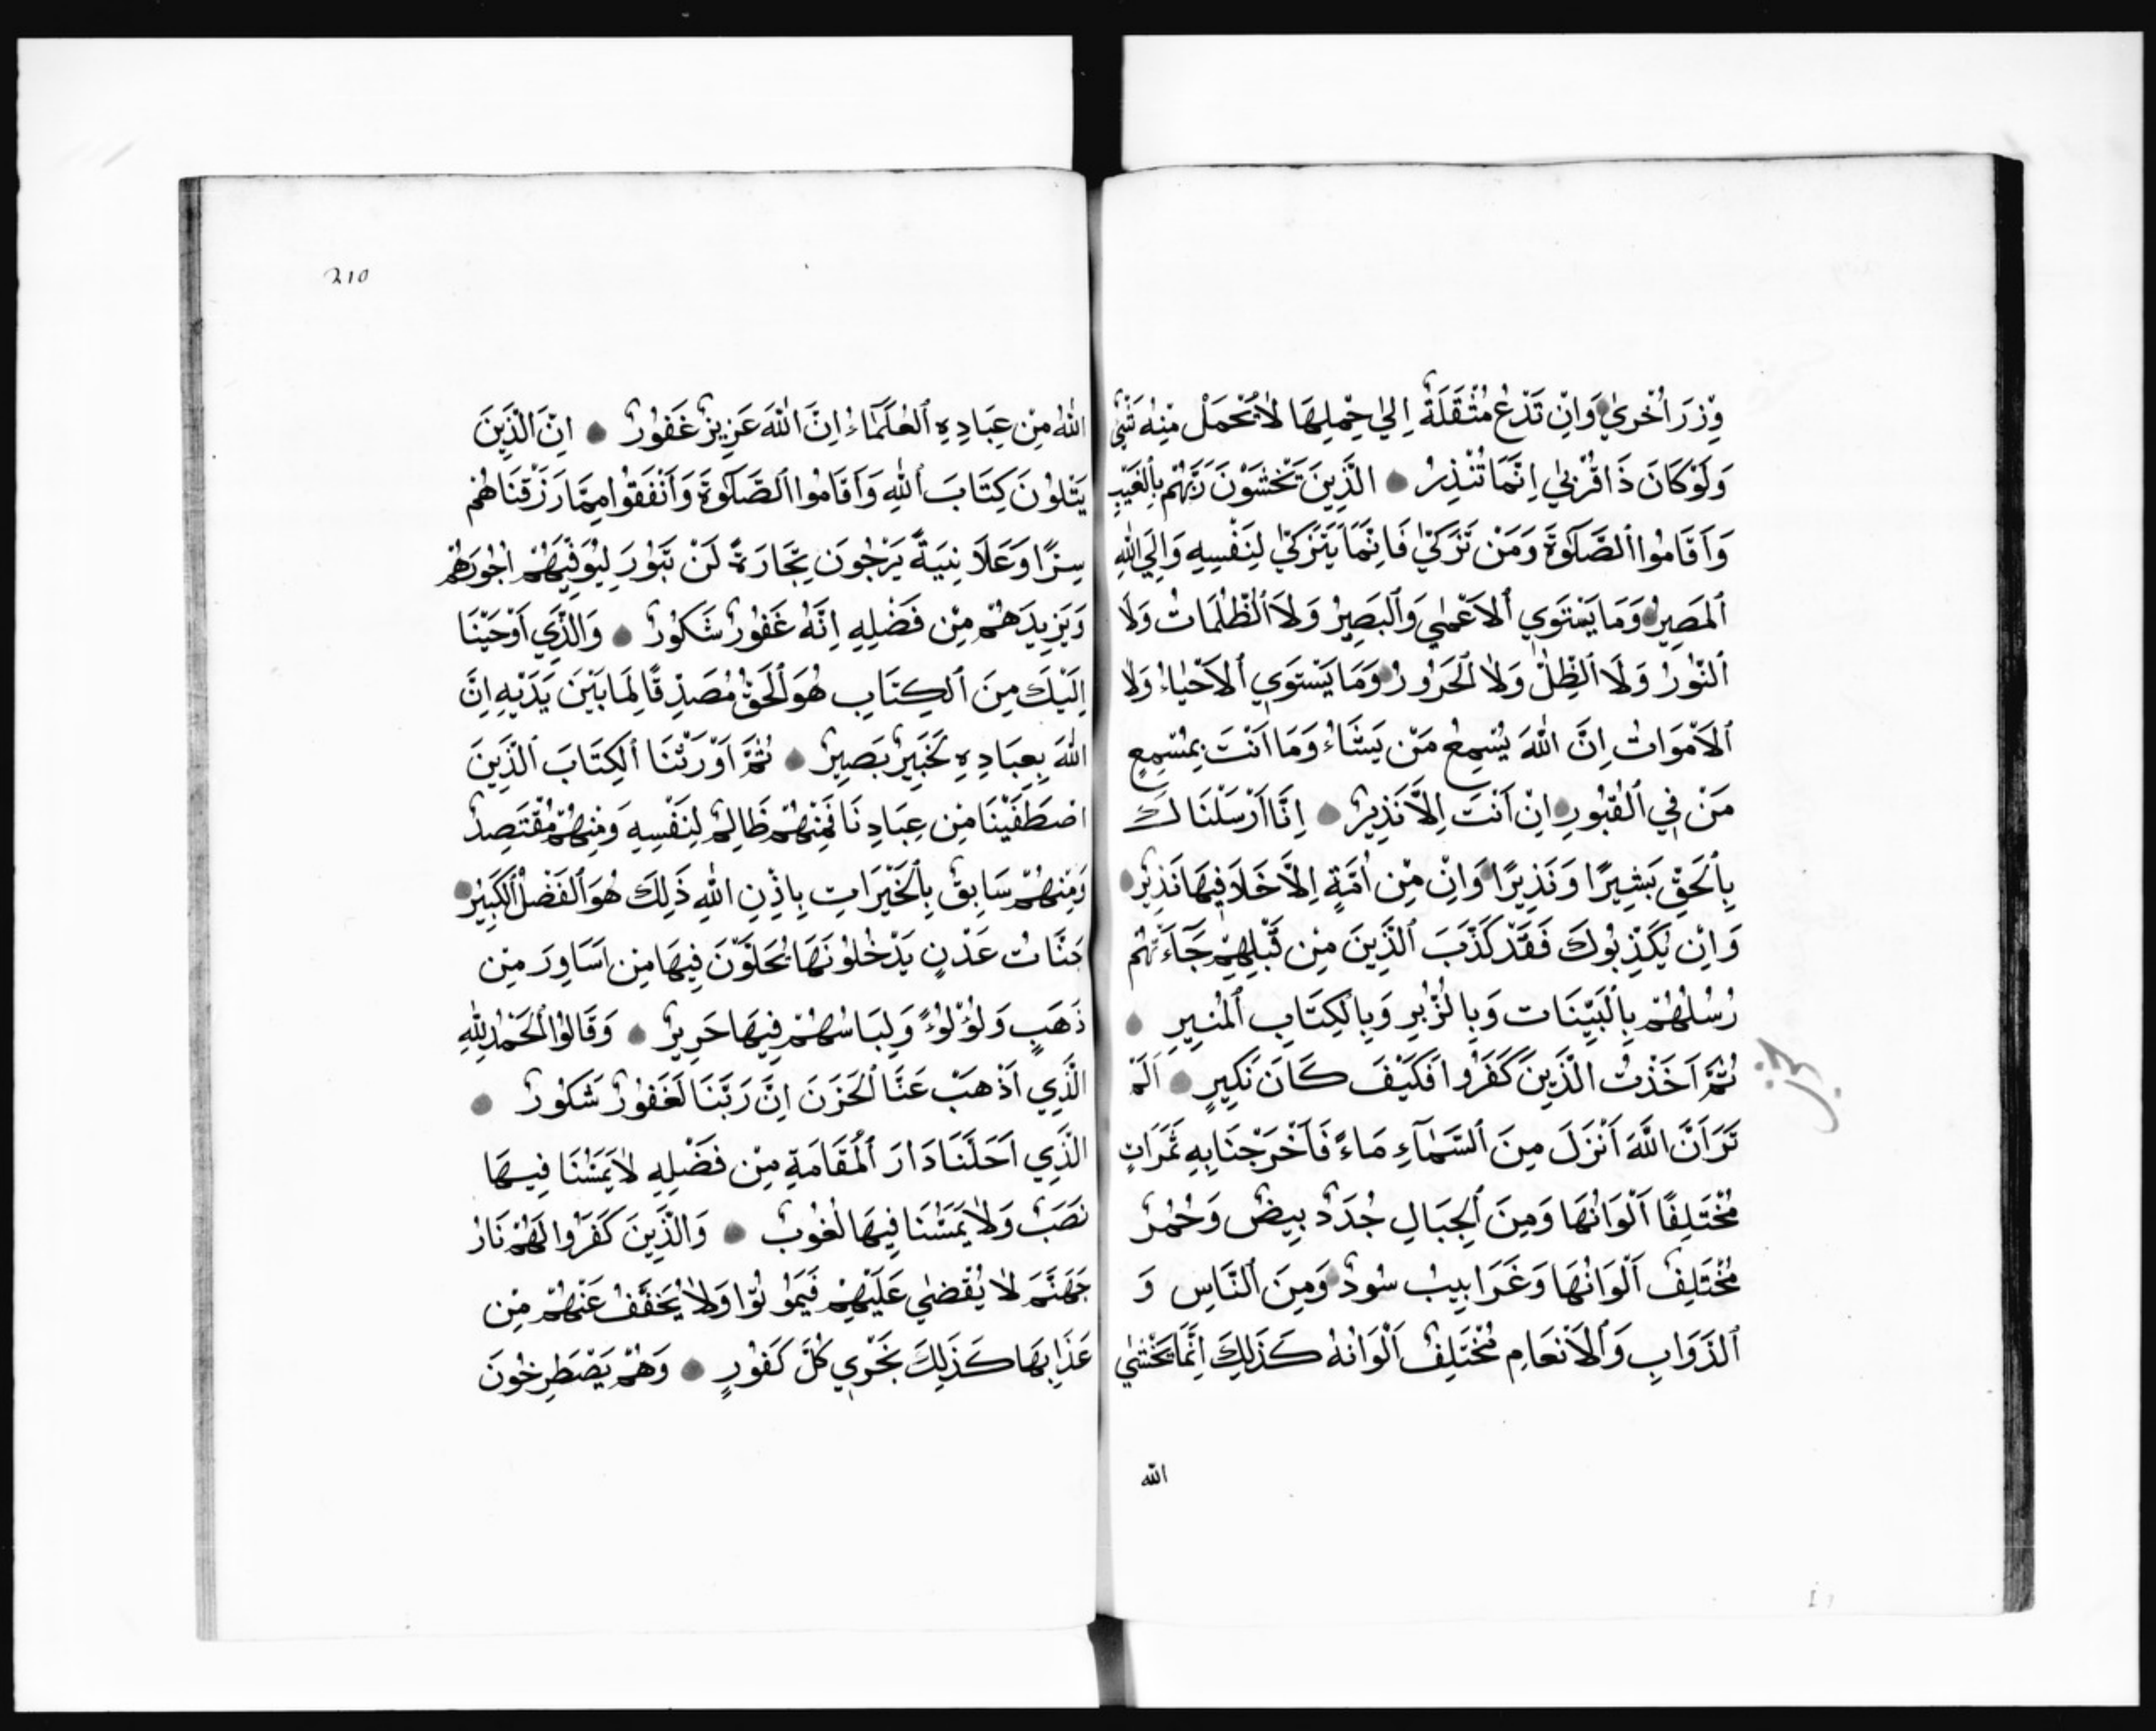 وِزْرَ اُخْريٰ وَاِنْ تَدْعُ مُثْقَلَةٌ اِليٰ حِمْلِهَا لاٰ يُحْمَلْ مِنْهُ شَيْءٌ
وَلَوْ كَانَ ذَا قُرْبيٰ اِنَّمَا تُنْذِرُ الَّذِينَ يَخْشَوْنَ رَبَّهُمْ بِالْغَيْبِ
وَاَقَامُوا الصَّلَوٰةَ وَمَنْ تَزَكّيٰ فَاِنَّمَا يَتَزَكّيٰ لِنَفْسِهِ وَاِلَي اللهِ
الْمَصِيرُ وَمَا يَسْتَوِي الْاَعْميٰ وَالْبَصِيرُ وَلاَ الظُّلُمَاتُ وَلاَ
النُّورُ وَلاَ الظِّلُّ وَلاٰ الْحَرُورُ وَمَا يَسْتَوِي الْاَحْيَاءُ وَلاٰ
الْاَمْوَاتُ اِنَّ اللهَ يُسْمِعُ مَنْ يَشَاءُ وَمَا اَنْتَ بِمُسْمِعٍ
مَنْ فِي الْقُبُورِ اِنْ اَنْتَ اِلاَّ نَذِيرٌ اِنَّا اَرْسَلْنَاكَ
بِالْحَقِّ بَشِيرًا وَنَذِيرًا وَاِنْ مِنْ اُمَّةٍ اِلاَّ خَلاَ فِيهَا نَذِيرٌ
وَاِنْ يُكَذِّبُوكَ فَقَدْ كَذَّبَ الَّذِينَ مِنْ قَبْلِهِمْ جَآءَتْهُمْ
رُسُلُهُمْ بِالْبَيِّنَات وَبِالزُّبُرِ وَبِالْكِتَابِ الْمُنِيرِ
ثُمَّ اَخَذْتُ الَّذِينَ كَفَرُوا فَكَيْفَ كَانَ نَكِيرِ اَلَمْ
تَرَ اَنَّ اللَّهَ اَنْزَلَ مِنَ السَّمَآءِ مَاءً فَاَخْرَجْنَا بِهِ ثَمَرَاتٍ
مُخْتَلِفًا اَلْوَانُهَا وَمِنَ الْجِبَالِ جُدَدٌ بِيضٌ وَحُمْرٌ
مُخْتَلِفٌ اَلْوَانُهَا وَغَرَابِيبُ سُودٌ وَمِنَ النَّاسِ وَ
الدَّوَابِ وَالْاَنْعَامِ مُخْتَلِفٌ اَلْوَانُهُ كَذَلِكَ اِنَّمَا يَخْشيٰ
الله
210
اللهُ مِنْ عِبَادِهِ الْعُلَمَاءُ اِنَّ اللهَ عَزِيزٌ غَفُورٌ اِنَّ الَّذِينَ
يَتْلُونَ كِتَابَ اللهِ وَاَقَامُوا الصَّلَوٰةَ وَاَنْفَقُوا مِمَّا رَزَقْنَاهُمْ
سِرًّا وَعَلاَنِيَةً يَرْجُونَ تِجَارَةً لَنْ تَبُورَ لِيُوَفِّيَهُمْ اُجُورَهُمْ
وَيَزِيدَهُمْ مِنْ فَضْلِهِ اِنَّهُ غَفُورٌ شَكُورٌ وَالَّذِي اَوْحَيْنَا
اِلَيْكَ مِنَ الْكِتَابِ هُوَ الْحَقُّ مُصَدِّقًا لِمَا بَيْنَ يَدَيْهِ اِنَّ
اللهَ بِعِبَادِهِ لَخَبِيرٌ بَصِيرٌ ثُمَّ اَوْرَثْنَا الْكِتَابَ الَّذِينَ
اصْطَفَيْنَا مِنْ عِبَادِنَا فَمِنْهُمْ ظَالِمٌ لِنَفْسِهِ وَمِنْهُمْ مُقْتَصِدٌ
وَمِنْهُمْ سَابِقٌ بِالْخَيْرَاتِ بِاِذْنِ اللهِ ذَلِكَ هُوَ الْفَضْلُ الْكَبِيْرُ
جَنَّاتُ عَدْنٍ يَدْخُلُونَهَا يُحَلَّوْنَ فِيهَا مِنْ اَسَاوِرَ مِنْ
ذَهَبٍ وَلُؤْلُوءً وَلِبَاسُهُمْ فِيهَا حَرِيرٌ وَقَالُوا الْحَمْدُ لِلّٰهِ
الَّذِي اَذْهَبَ عَنَّا الْحَزَنَ اِنَّ رَبَّنَا لَغَفُورٌ شَكُورٌ
الَّذِي اَحَلَّنَا دَارَ الْمُقَامَةِ مِنْ فَضْلِهِ لاٰ يَمَسُّنَا فِيهَا
نَصَبٌ وَلاٰ يَمَسُّنَا فِيهَا لُغُوبٌ وَالَّذِينَ كَفَرُوا لَهُمْ نَارُ
جَهَنَّمَ لاٰ يُقْضيٰ عَلَيْهِمْ فَيَمُوتُوا وَلاٰ يُخَفَّفُ عَنْهُمْ مِنْ
عَذَابِهَا كَذَلِكَ نَجْزِي كُلَّ كَفُورٍ وَهُمْ يَصْطَرِخُونَ